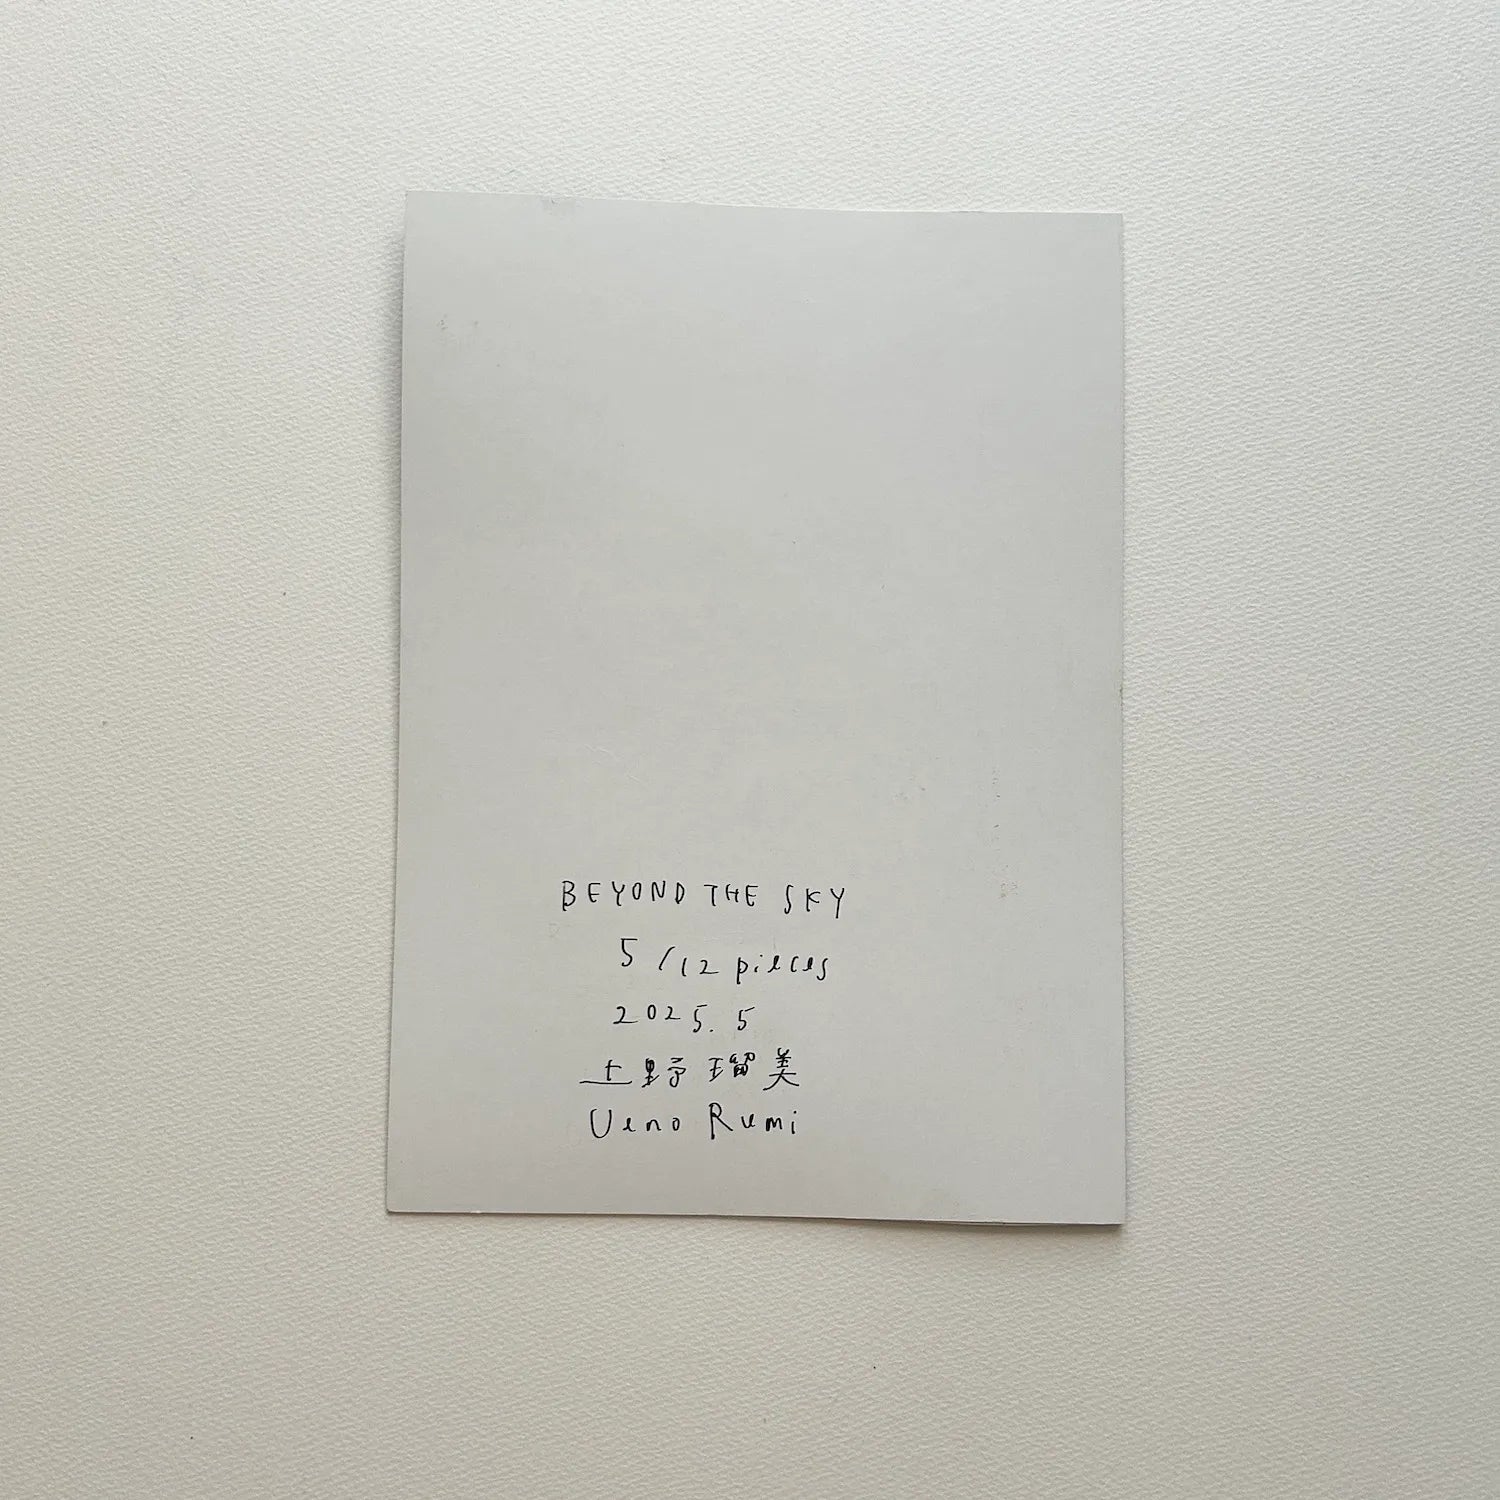 BEYOND THE SKY
5/12 pieces
2025.5
上野瑠美
Ueno Rumi